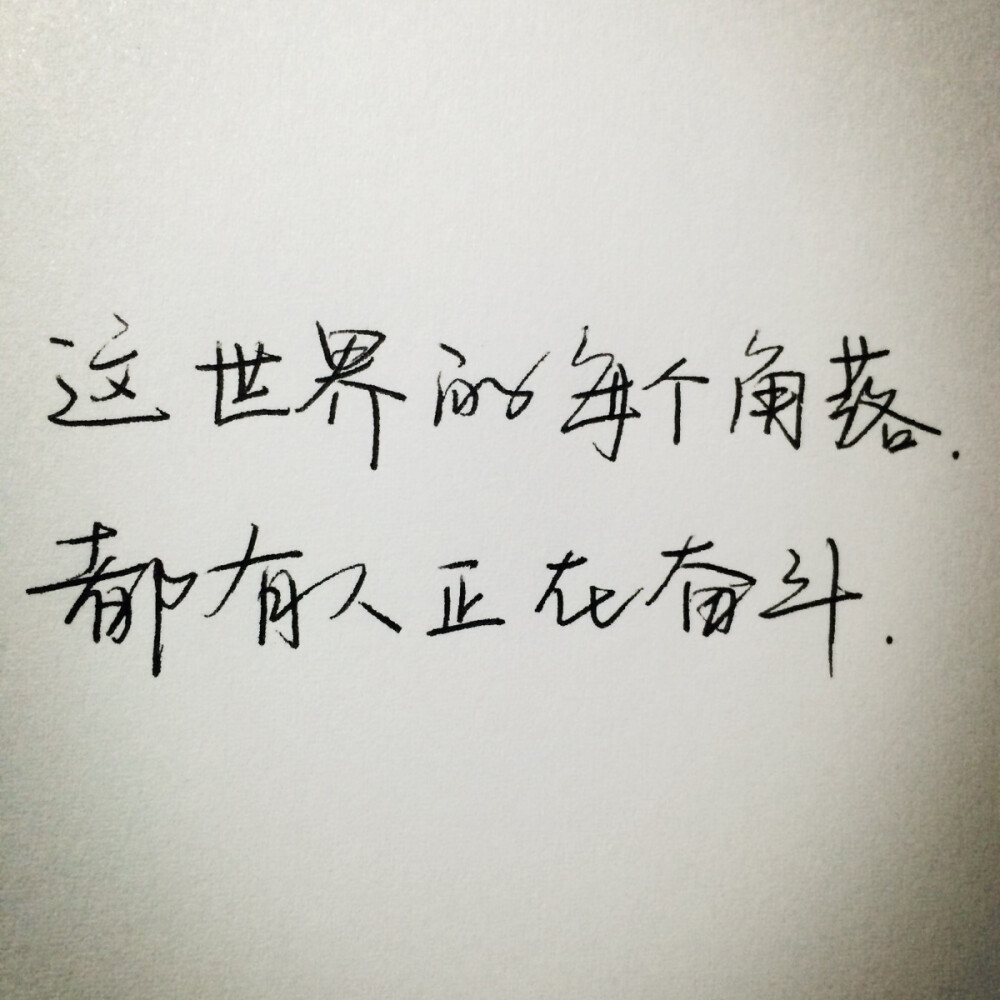 这世界的每个角落.
都有人正在奋斗.